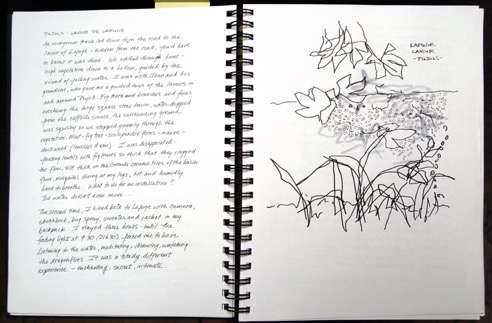 PUJOLS: LAVOIR DE LAFUGE
An overgrown track led down from the road to the
lavoir of Lafuge - hidden from the road, you'd have
to know it was there. We walked through dense
high vegetation down to a hollow, guided by the
sound of falling water. I was with and his
grandson, who gave me a guided tour of the lavoirs in
and around Pujols. Fig trees and branches and ferns
overhung the large square stone basin, water dripped
from the surrounding ground
was squishy so we stepped gingerly through the
vegetation. Mint - fig tree - ferns - mauve -
duckweed - I was disappointed:
floating lentils with fig leaves so thick that they clogged
the flow, silt thick on the tiles of the basin
floor, mosquitos diving at my legs, hot and humidly
hard to breathe. What to do for an installation?
The water doesn't even move
The second time, I hiked back to Lafuge with camera,
sketchbook, bug spray, sweater and jacket in my
backpack. I stayed three hours - until the
fading light at 9:30 (21h30) forced me to leave.
Listening to the water, meditating, dreaming, watching
the dragonflies. It was a totally different
experience - enchanting, secret, intimate.
LAFUGE
LAVOIR
- PUJOLS -